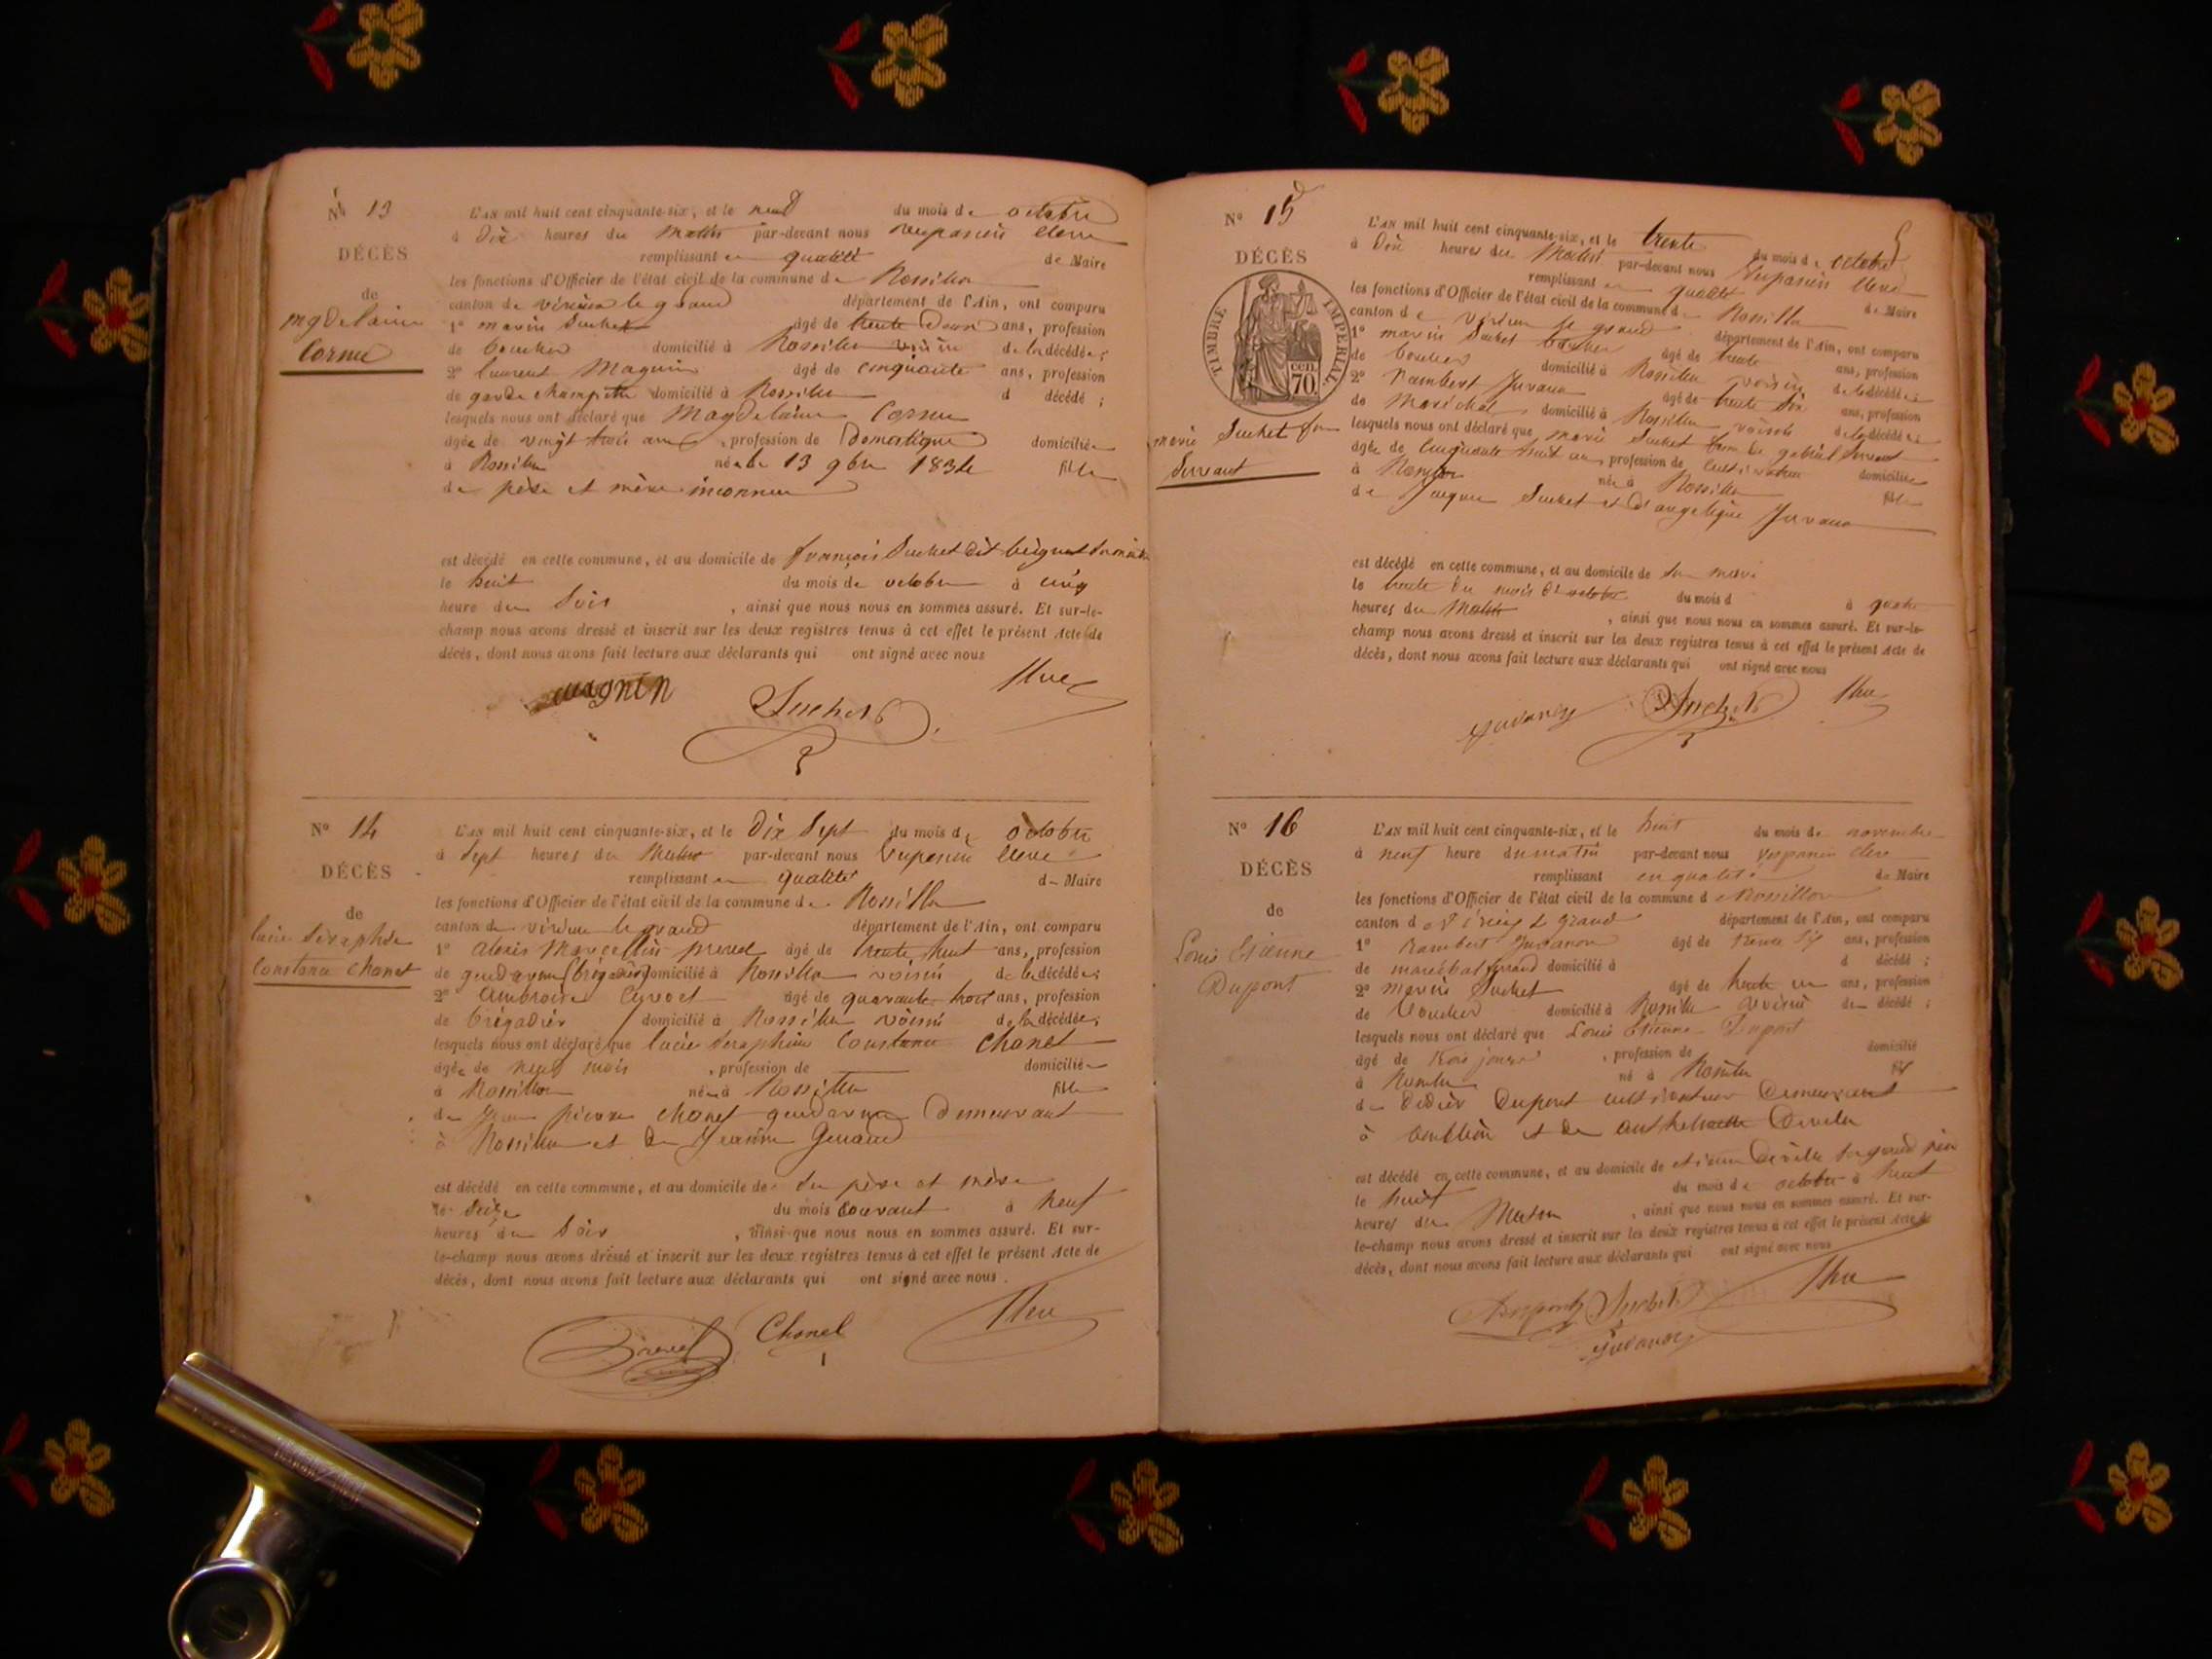 Nº 13
DÉCÈS
de
mgdelaine
Cornu
L'AN mil huit cent cinquante-six, et le neuf du mois de octobre
à dix heures du matin par-devant nous
remplissant en qualité de Maire
les fonctions d'Officier de l'état civil de la commune de Rossillon
canton de virieu le grand département de l'Ain, ont comparu
1º marin Suchet âgé de trente deux ans, profession
de boucher domicilié à Rossillon voisin de la décédée;
2º laurent Magnin âgé de cinquante ans, profession
de garde champêtre domicilié à Rossillon d décédé ;
lesquels nous ont déclaré que Magdelaine Cornu
âgée de vingt trois ans, profession de Domestique domiciliée
à Rossillon née le 13 9bre 1834 fille
de père et mère inconnu
est décédé en cette commune, et au domicile de françois Suchet dit
le huit du mois de octobre à cinq
heure du Soir, ainsi que nous nous en sommes assuré. Et sur-le-
champ nous avons dressé et inscrit sur les deux registres tenus à cet effet le présent Acte de
décès, dont nous avons fait lecture aux déclarants qui ont signé avec nous
magnin Suchet
Nº 14
DÉCÈS
de
lucie Séraphie
Constance Chanel
L'AN mil huit cent cinquante-six, et le dix Sept du mois de octobre
à Sept heures du Matin par-devant nous
remplissant en qualité de Maire
les fonctions d'Officier de l'état civil de la commune de Rossillon
canton de virieu le grand département de l'Ain, ont comparu
1º alexis Marcellin âgé de trente huit ans, profession
de gendarme (brigadier) domicilié à Rossillon voisin de la décédée;
2º Ambroise âgé de quarante trois ans, profession
de brigadier domicilié à Rossillon voisin de la décédée;
lesquels nous ont déclaré que lucie Seraphine Constance Chanel
âgée de neuf mois, profession de domiciliée
à Rossillon née à Rossillon fille
de Jean pierre chanel gendarme Demeurant
à Rossillon et de Jeanne
est décédé en cette commune, et au domicile de Ses père et mère
le Seize du mois Courant à neuf
heures du Soir, ainsi que nous nous en sommes assuré. Et sur-
le-champ nous avons dressé et inscrit sur les deux registres tenus à cet effet le présent Acte de
décès, dont nous avons fait lecture aux déclarants qui ont signé avec nous.
Chanel
Nº 15
DÉCÈS
TIMBRE IMPÉRIAL
70 cen.
marie Suchet fme
Servant
L'AN mil huit cent cinquante-six, et le trente du mois d'octobre
à dix heures du Matin par-devant nous
remplissant en qualité de Maire
les fonctions d'Officier de l'état civil de la commune de Rossillon
canton de virieu le grand département de l'Ain, ont comparu
1º marin Suchet boucher âgé de trente ans, profession
de boucher domicilié à Rossillon voisin de la décédée
2º Rambert Juvanon âgé de trente Six ans, profession
de Maréchal domicilié à Rossillon voisin de la décédée
lesquels nous ont déclaré que marie Suchet femme de gabriel Servant
âgée de Cinquante huit ans, profession de Cultivateur domiciliée
à Rossillon née à Rossillon fille
de Jacques Suchet et d'angelique Juvanon
est décédé en cette commune, et au domicile de Son mari
le trente du mois d'octobre du mois d à quatre
heures du Matin, ainsi que nous nous en sommes assuré. Et sur-le-
champ nous avons dressé et inscrit sur les deux registres tenus à cet effet le présent Acte de
décès, dont nous avons fait lecture aux déclarants qui ont signé avec nous
Suchet
Nº 16
DÉCÈS
de
Louis Etienne
Dupont
L'AN mil huit cent cinquante-six, et le huit du mois de novembre
à neuf heure du matin par-devant nous
remplissant en qualité de Maire
les fonctions d'Officier de l'état civil de la commune de Rossillon
canton de Virieu le Grand département de l'Ain, ont comparu
1º Rambert Juvanon âgé de trente Six ans, profession
de maréchal ferrand domicilié à d décédé ;
2º marin Suchet âgé de trente un ans, profession
de Boucher domicilié à Rossillon voisin de décédé ;
lesquels nous ont déclaré que Louis Etienne Dupont
âgé de trois jours, profession de domicilié
à Rossillon né à Rossillon fils
de Didier Dupont cultivateur Demeurant
à et de
est décédé en cette commune, et au domicile de Son grand père
le huit du mois de octobre à huit
heures du Matin, ainsi que nous nous en sommes assuré. Et sur-
le-champ nous avons dressé et inscrit sur les deux registres tenus à cet effet le présent Acte de
décès, dont nous avons fait lecture aux déclarants qui ont signé avec nous
Dupont Suchet